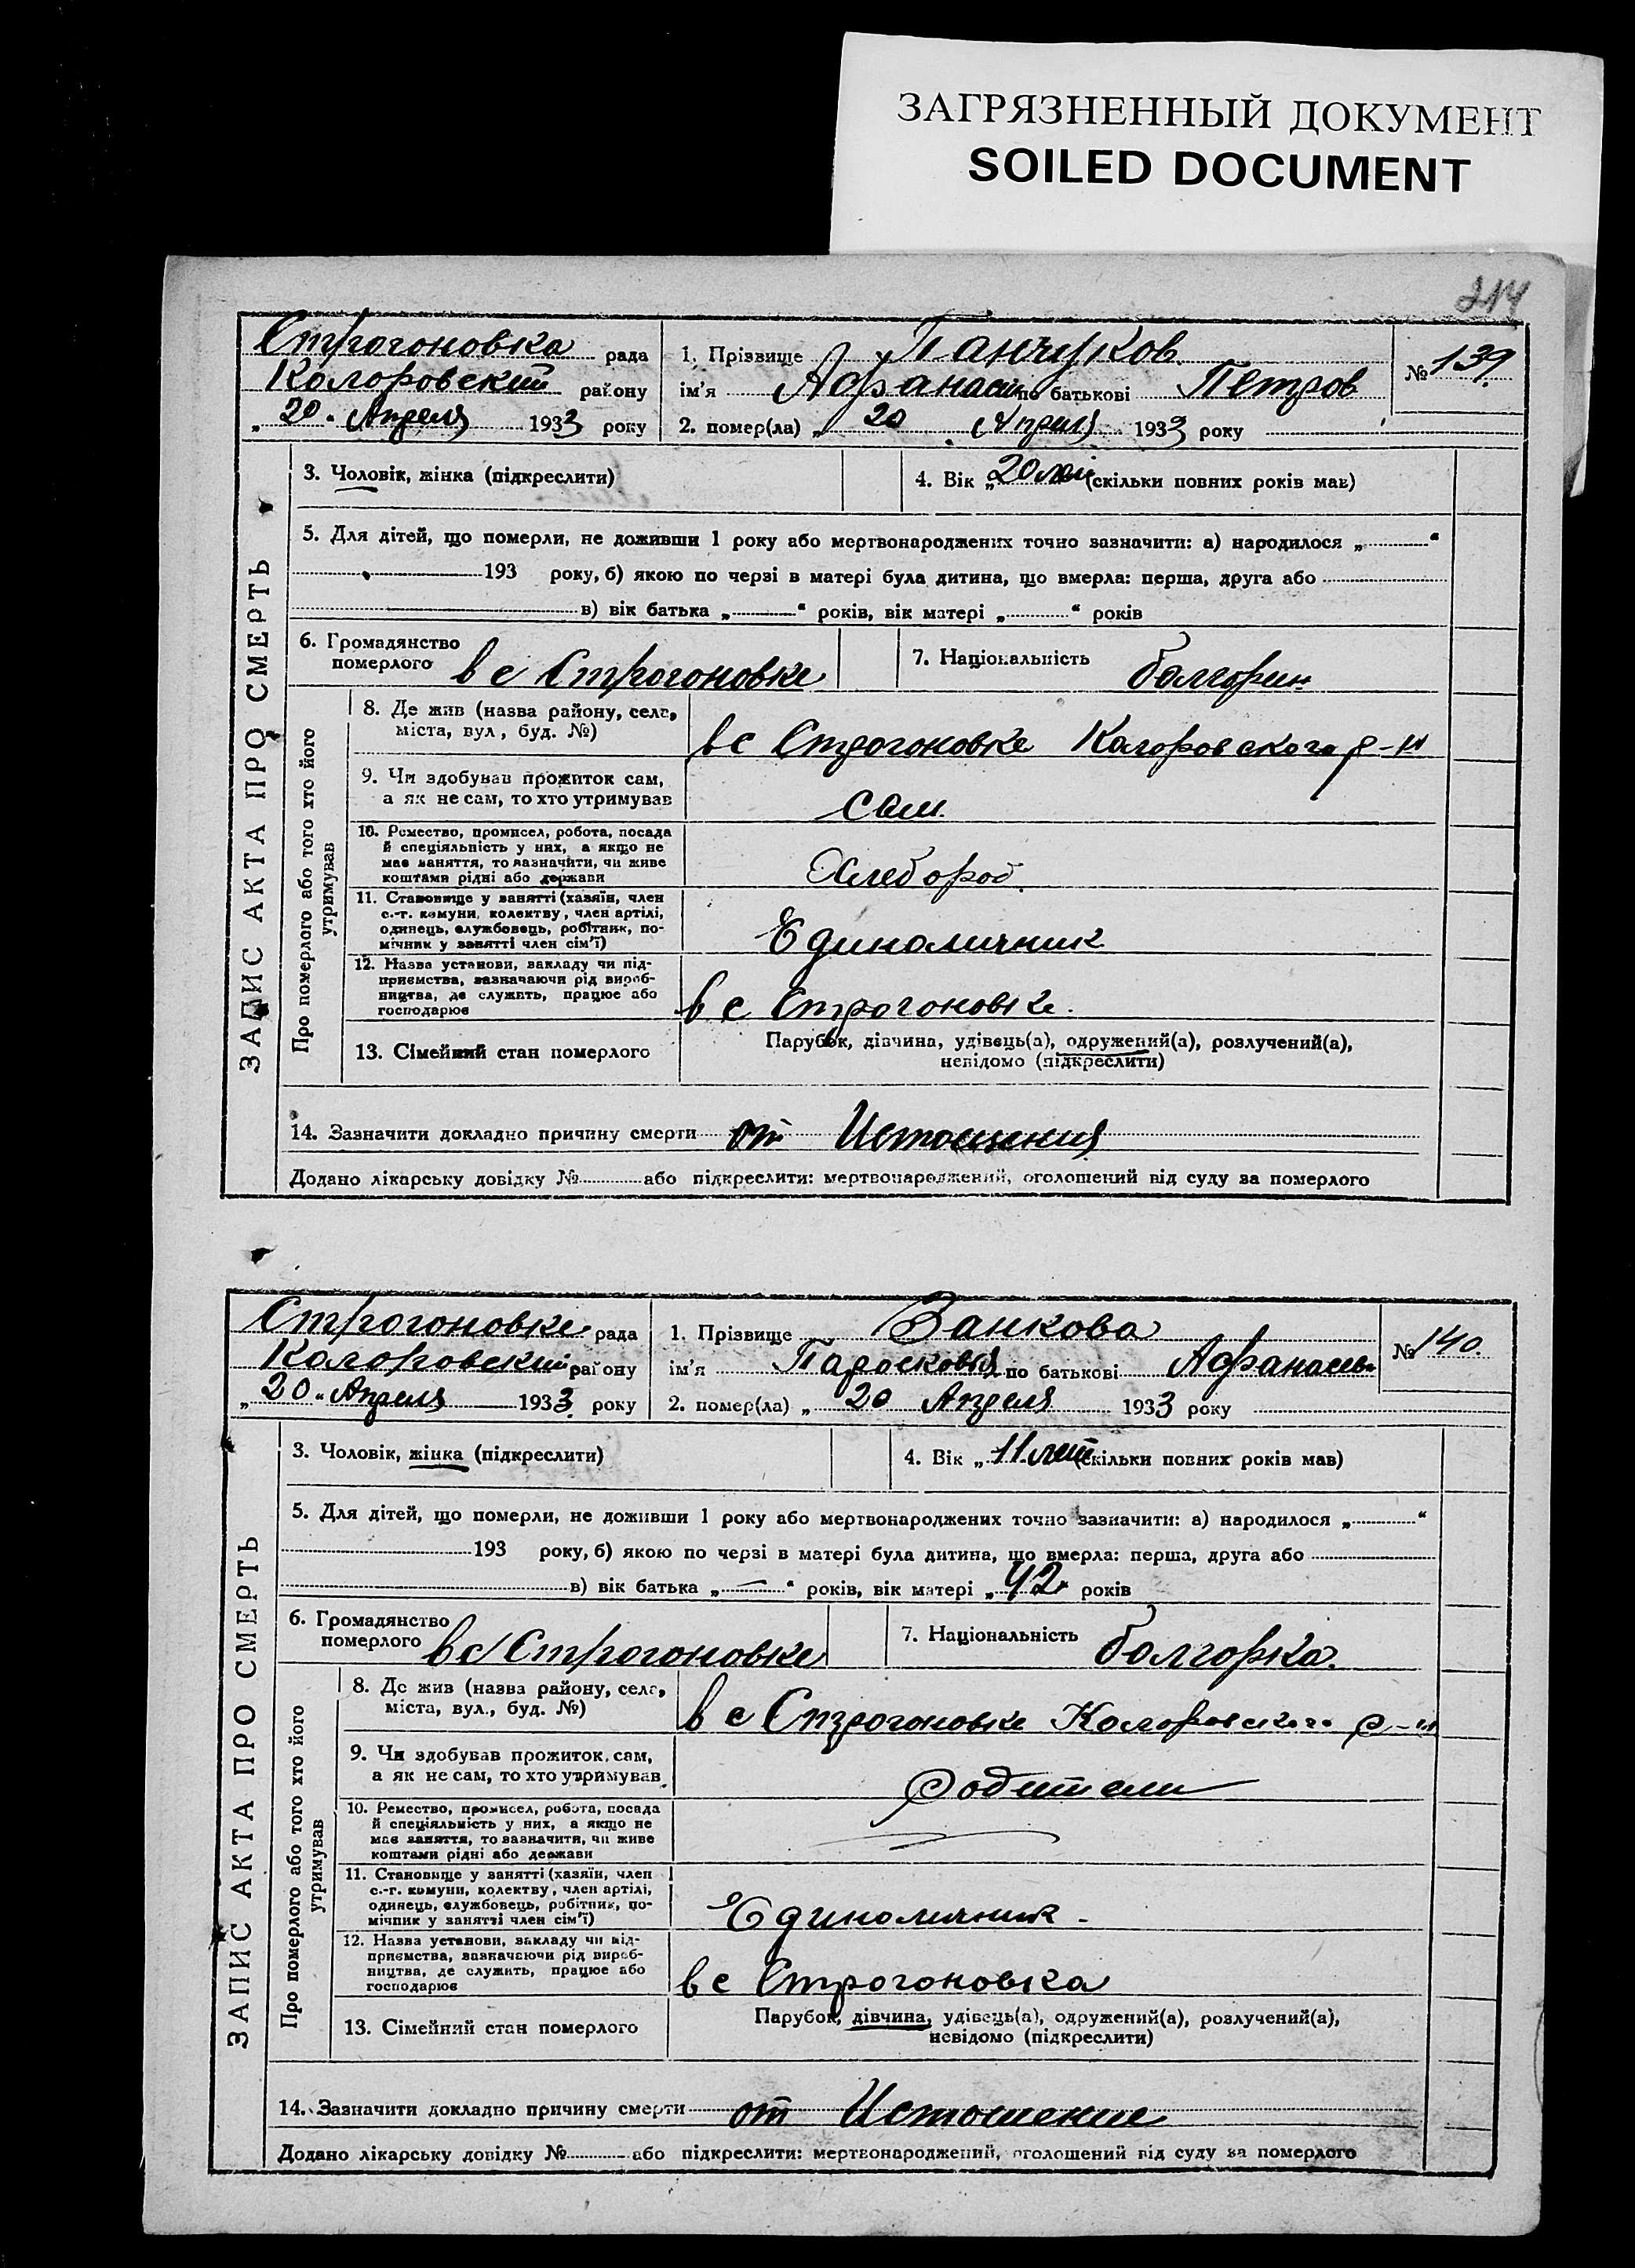 ЗАГРЯЗНЕННЫЙ ДОКУМЕНТ
SOILED DOCUMENT
214
ЗАПИС АКТА ПРО СМЕРТЬ
Строгоновка рада
Коларовский району
„20“ Апреля 1933 року
1. Прізвище Панчуков
ім'я Афанасий по батькові Петров
2. помер(ла) „20 Апреля 1933 року
№ 139.
3. Чоловік, жінка (підкреслити)
4. Вік „20 лет (скільки повних років мав)
5. Для дітей, що померли, не доживши 1 року або мертвонароджених точно зазначити: а) народилося „ “
193 року, б) якою по черзі в матері була дитина, що вмерла: перша, друга або
в) вік батька „ “ років, вік матері „ “ років
6. Громадянство
померлого в с Строгоновке
7. Національність болгорин
Про померлого або того хто його
утримував
8. Де жив (назва району, села,
міста, вул., буд. №)
в с Строгоновке Колоровского р-н
9. Чи здобував прожиток сам,
а як не сам, то хто утримував
Сам.
10. Ремество, промисел, робота, посада
й спеціяльність у них, а якщо не
має заняття, то зазначити, чи живе
коштами рідні або держави
Хлебороб.
11. Становище у занятті (хазяїн, член
с.-г. комуни, колектву, член артілі,
одинець, службовець, робітник, по-
мічник у занятті член сім'ї)
Единоличник
12. Назва установи, закладу чи під-
приємства, зазначаючи рід вироб-
ництва, де служить, працює або
господарює
в с Строгоновке.
13. Сімейний стан померлого
Парубок, дівчина, удівець(а), одружений(а), розлучений(а),
невідомо (підкреслити)
14. Зазначити докладно причину смерти от Истощения
Додано лікарську довідку № або підкреслити: мертвонароджений, оголошений від суду за померлого
ЗАПИС АКТА ПРО СМЕРТЬ
Строгоновке рада
Коларовский району
„20“ Апреля 1933 року
1. Прізвище Занкова
ім'я Парасковья по батькові Афанасьев
2. помер(ла) „20 Апреля 1933 року
№ 140.
3. Чоловік, жінка (підкреслити)
4. Вік „11 лет (скільки повних років мав)
5. Для дітей, що померли, не доживши 1 року або мертвонароджених точно зазначити: а) народилося „ “
193 року, б) якою по черзі в матері була дитина, що вмерла: перша, друга або
в) вік батька „—“ років, вік матері „42 років
6. Громадянство
померлого в с Строгоновке
7. Національність болгорка.
Про померлого або того хто його
утримував
8. Де жив (назва району, села,
міста, вул., буд. №)
в с Строгоновке Коларовского р-н
9. Чи здобував прожиток сам,
а як не сам, то хто утримував
родители
10. Ремество, промисел, робота, посада
й спеціяльність у них, а якщо не
має заняття, то зазначити, чи живе
коштами рідні або держави
11. Становище у занятті (хазяїн, член
с.-г. комуни, колектву, член артілі,
одинець, службовець, робітник, по-
мічник у занятті член сім'ї)
Единоличник -
12. Назва установи, закладу чи під-
приємства, зазначаючи рід вироб-
ництва, де служить, працює або
господарює
в с Строгоновка
13. Сімейний стан померлого
Парубок, дівчина, удівець(а), одружений(а), розлучений(а),
невідомо (підкреслити)
14. Зазначити докладно причину смерти от Истощение
Додано лікарську довідку № або підкреслити: мертвонароджений, оголошений від суду за померлого